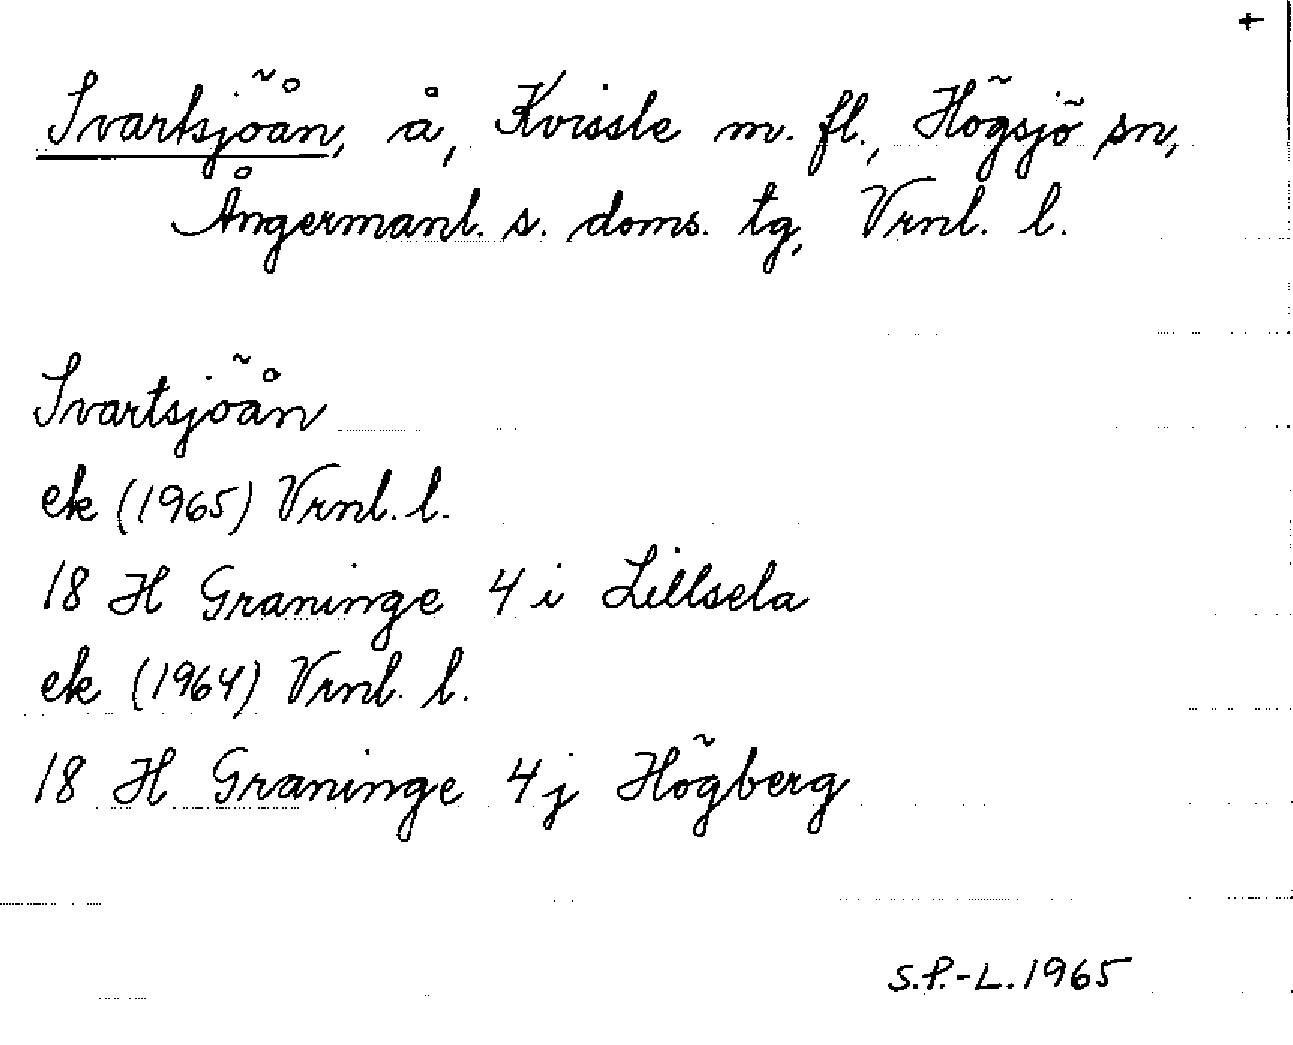 +
Svartsjöån, å, Kvissle m. fl., Högsjö sn,
Ångermanl. s. doms. tg, Vrnl. l.
Svartsjöån
ek (1965) Vrnl. l.
18 H Graninge 4 i Lillsela
ek (1964) Vrnl. l.
18 H Graninge 4 j Högberg
S.P.-L. 1965